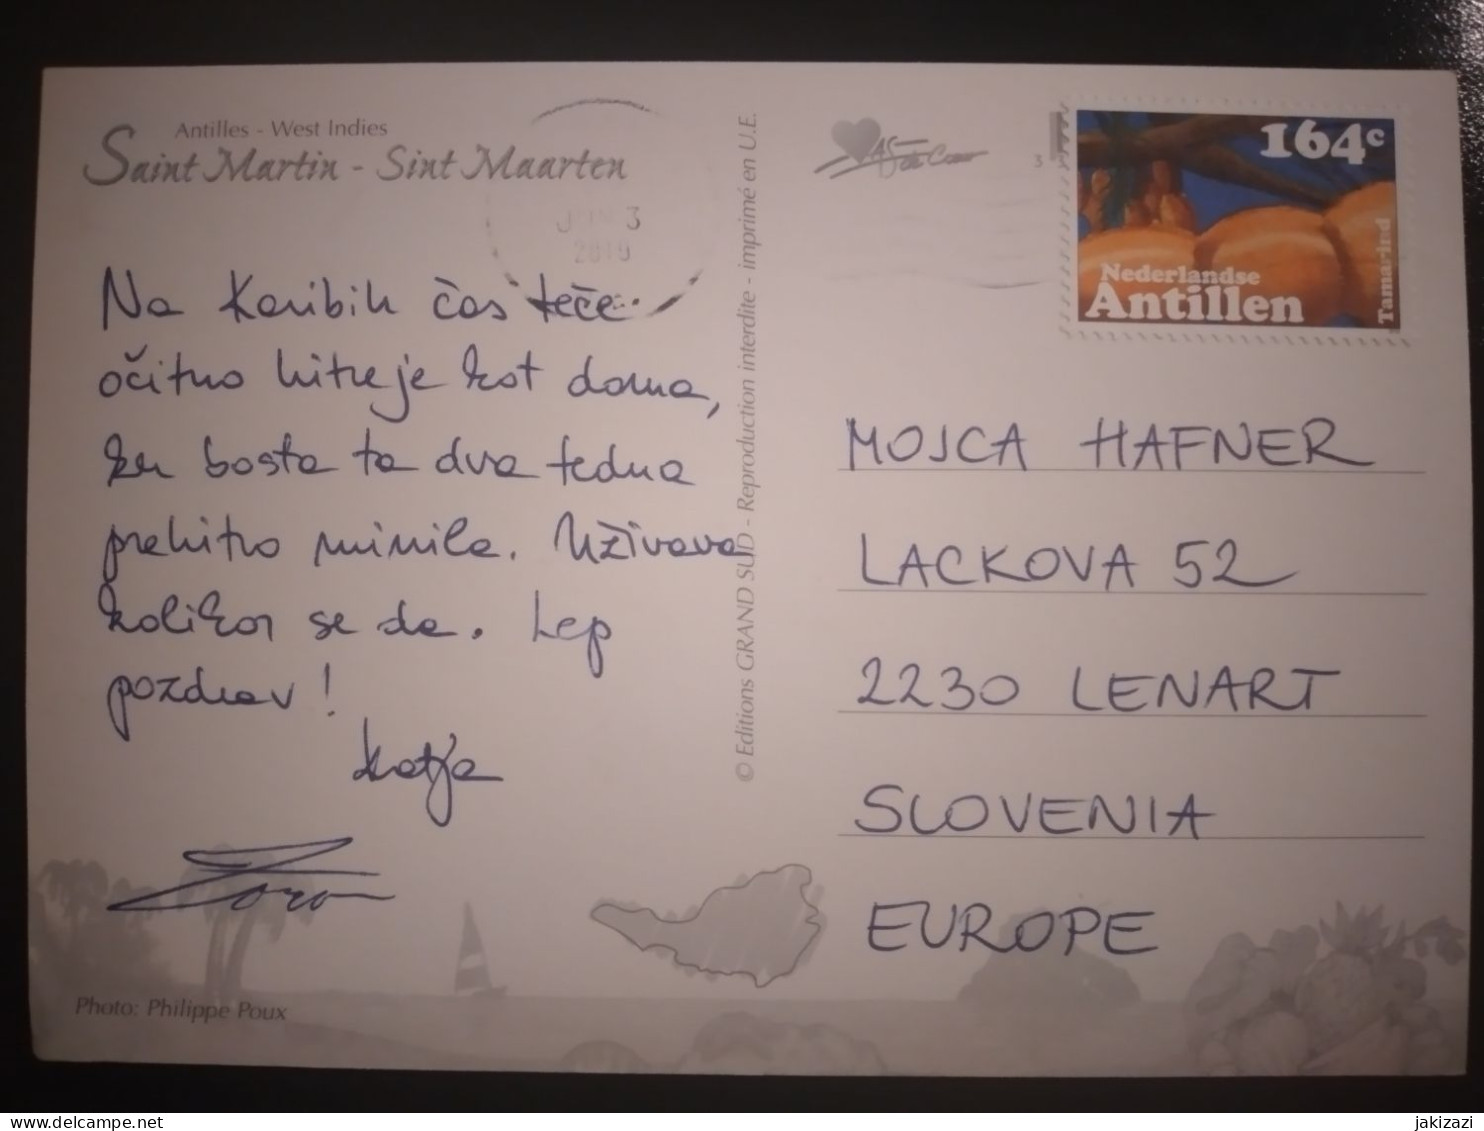 Antilles - West Indies
Saint Martin - Sint Maarten
3
2010
Na Karibih čas teče
očitno hitreje kot doma,
ker bosta ta dva tedna
prehitro minila. Uživava
kolikor se da. Lep
pozdrav!
Katja
Photo: Philippe Poux
© Editions GRAND SUD - Reproduction interdite - imprimé en U.E.
164c
Nederlandse
Antillen
Tamarind
MOJCA HAFNER
LACKOVA 52
2230 LENART
SLOVENIA
EUROPE
delcampe.net
jakizazi